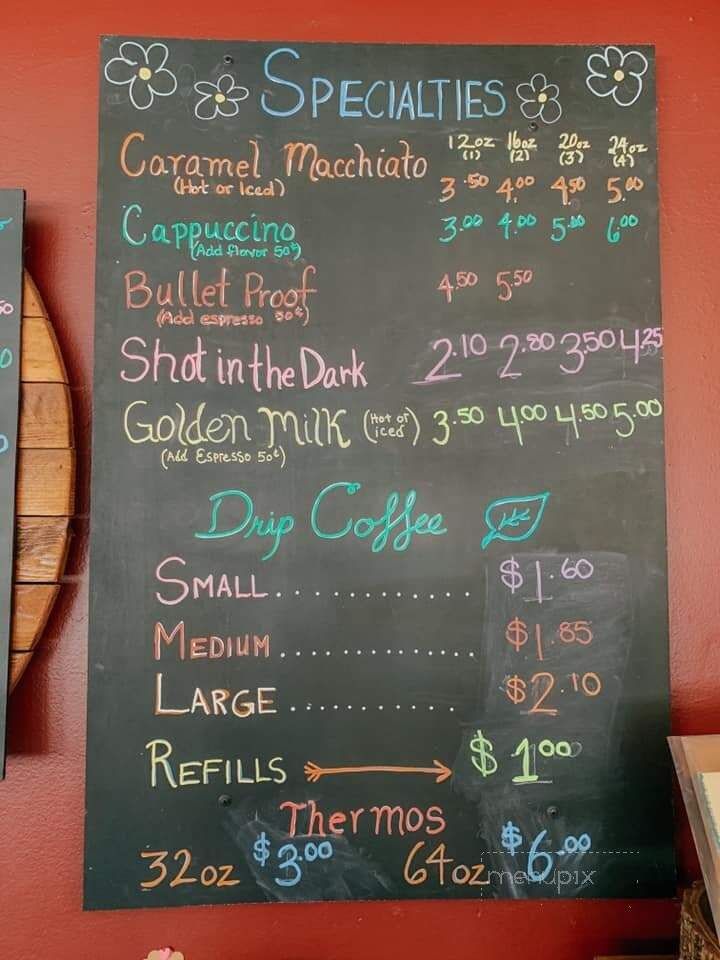 SPECIALTIES
12oz 16oz 20oz 24oz
(1) (2) (3) (4)
Caramel Macchiato 3.50 4.00 4.50 5.00
(Hot or Iced)
Cappuccino 3.00 4.00 5.00 6.00
(Add flavor 50¢)
Bullet Proof 4.50 5.50
(Add espresso 50¢)
Shot in the Dark 2.10 2.80 3.50 4.25
Golden Milk (Hot or iced) 3.50 4.00 4.50 5.00
(Add Espresso 50¢)
Drip Coffee
SMALL............ $1.60
MEDIUM............ $1.85
LARGE........... $2.10
REFILLS $1.00
Thermos
32oz $3.00 64oz $6.00
menupix